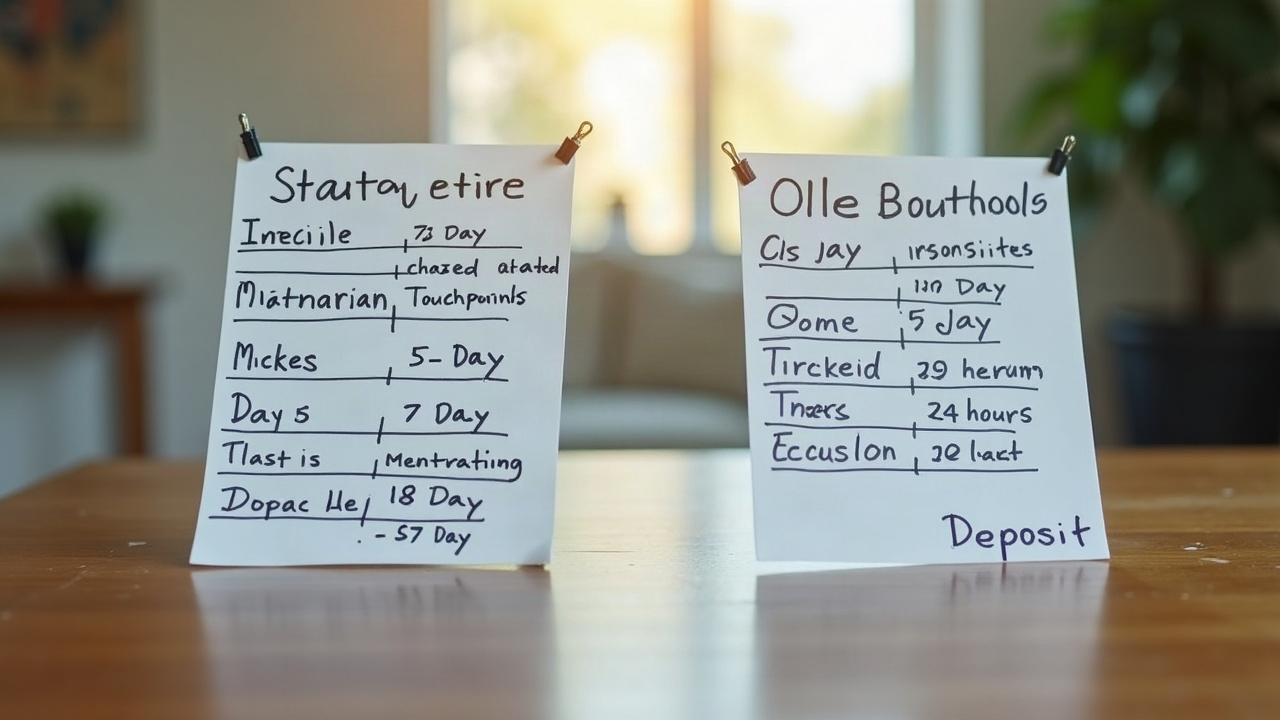 Startay etire
Ineciile 73 Day
chazed atated
Miatnarian Touchponinls
Mickes 5- Day
Day 5 7 Day
Tlast is Mentrating
Dopac He 18 Day
- 57 Day
Olle Bouthools
Cls Jay irsonsiites
Day
Qome 5 Jay
Tirckeid 39 herum
Tnears 24 hours
Eccuslon 30
Deposit